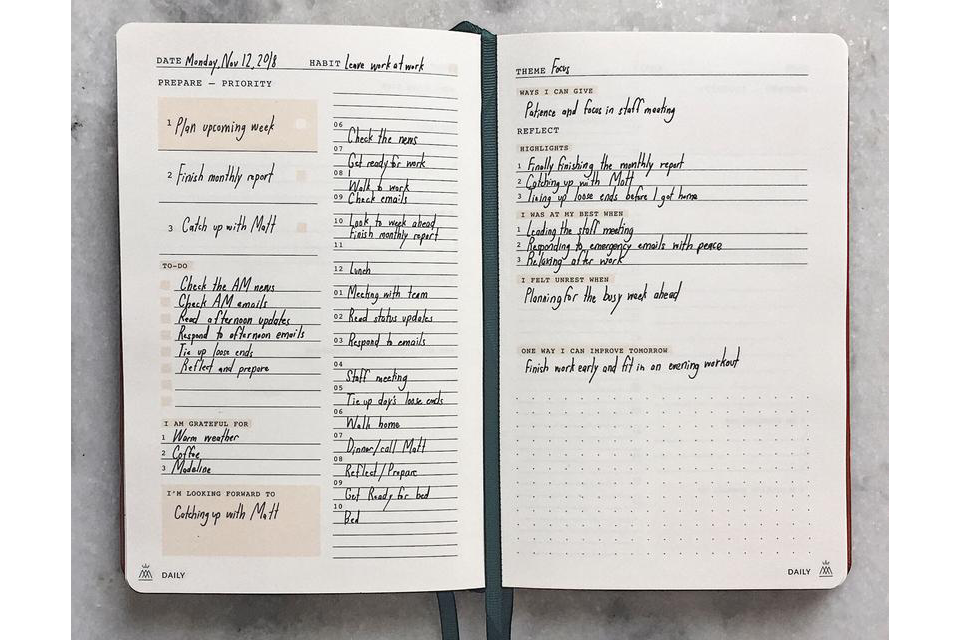 DATE Monday, Nov 12, 2018
HABIT Leave work at work
PREPARE — PRIORITY
1 Plan upcoming week
2 Finish monthly report
3 Catch up with Matt
TO-DO
Check the AM news
Check AM emails
Read afternoon updates
Respond to afternoon emails
Tie up loose ends
Reflect and prepare
I AM GRATEFUL FOR
1 Warm weather
2 Coffee
3 Madaline
I'M LOOKING FORWARD TO
Catching up with Matt
06
Check the news
07
Get ready for work
08
Walk to work
09 Check emails
10 Look to week ahead
Finish monthly report
11
12 Lunch
01 Meeting with team
02 Read status updates
03 Respond to emails
04
Staff meeting
05
Tie up day's loose ends
06
Walk home
07
Dinner/call Matt
08
Reflect/Prepare
09
Get Ready for bed
10
Bed
DAILY
THEME Focus
WAYS I CAN GIVE
Patience and focus in staff meeting
REFLECT
HIGHLIGHTS
1 Finally finishing the monthly report
2 Catching up with Matt
3 Tieing up loose ends before I got home
I WAS AT MY BEST WHEN
1 Leading the staff meeting
2 Responding to emergency emails with peace
3 Relaxing after work
I FELT UNREST WHEN
Planning for the busy week ahead
ONE WAY I CAN IMPROVE TOMORROW
Finish work early and fit in an evening workout
DAILY